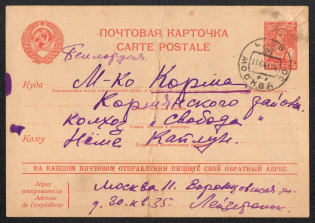 ПОЧТОВАЯ КАРТОЧКА
CARTE POSTALE
Белоруссия
Куда М-ко Корма
Кормянского района
колхоз "Свобода"
Кому Нёме Каплун.
НА КАЖДОМ ПОЧТОВОМ ОТПРАВЛЕНИИ ПИШИТЕ СВОЙ ОБРАТНЫЙ АДРЕС
Адрес отправителя
Adresse de l'expéditeur
Москва 11. Воронцовская ул.
д. 30. кв. 35.
МОСКВА